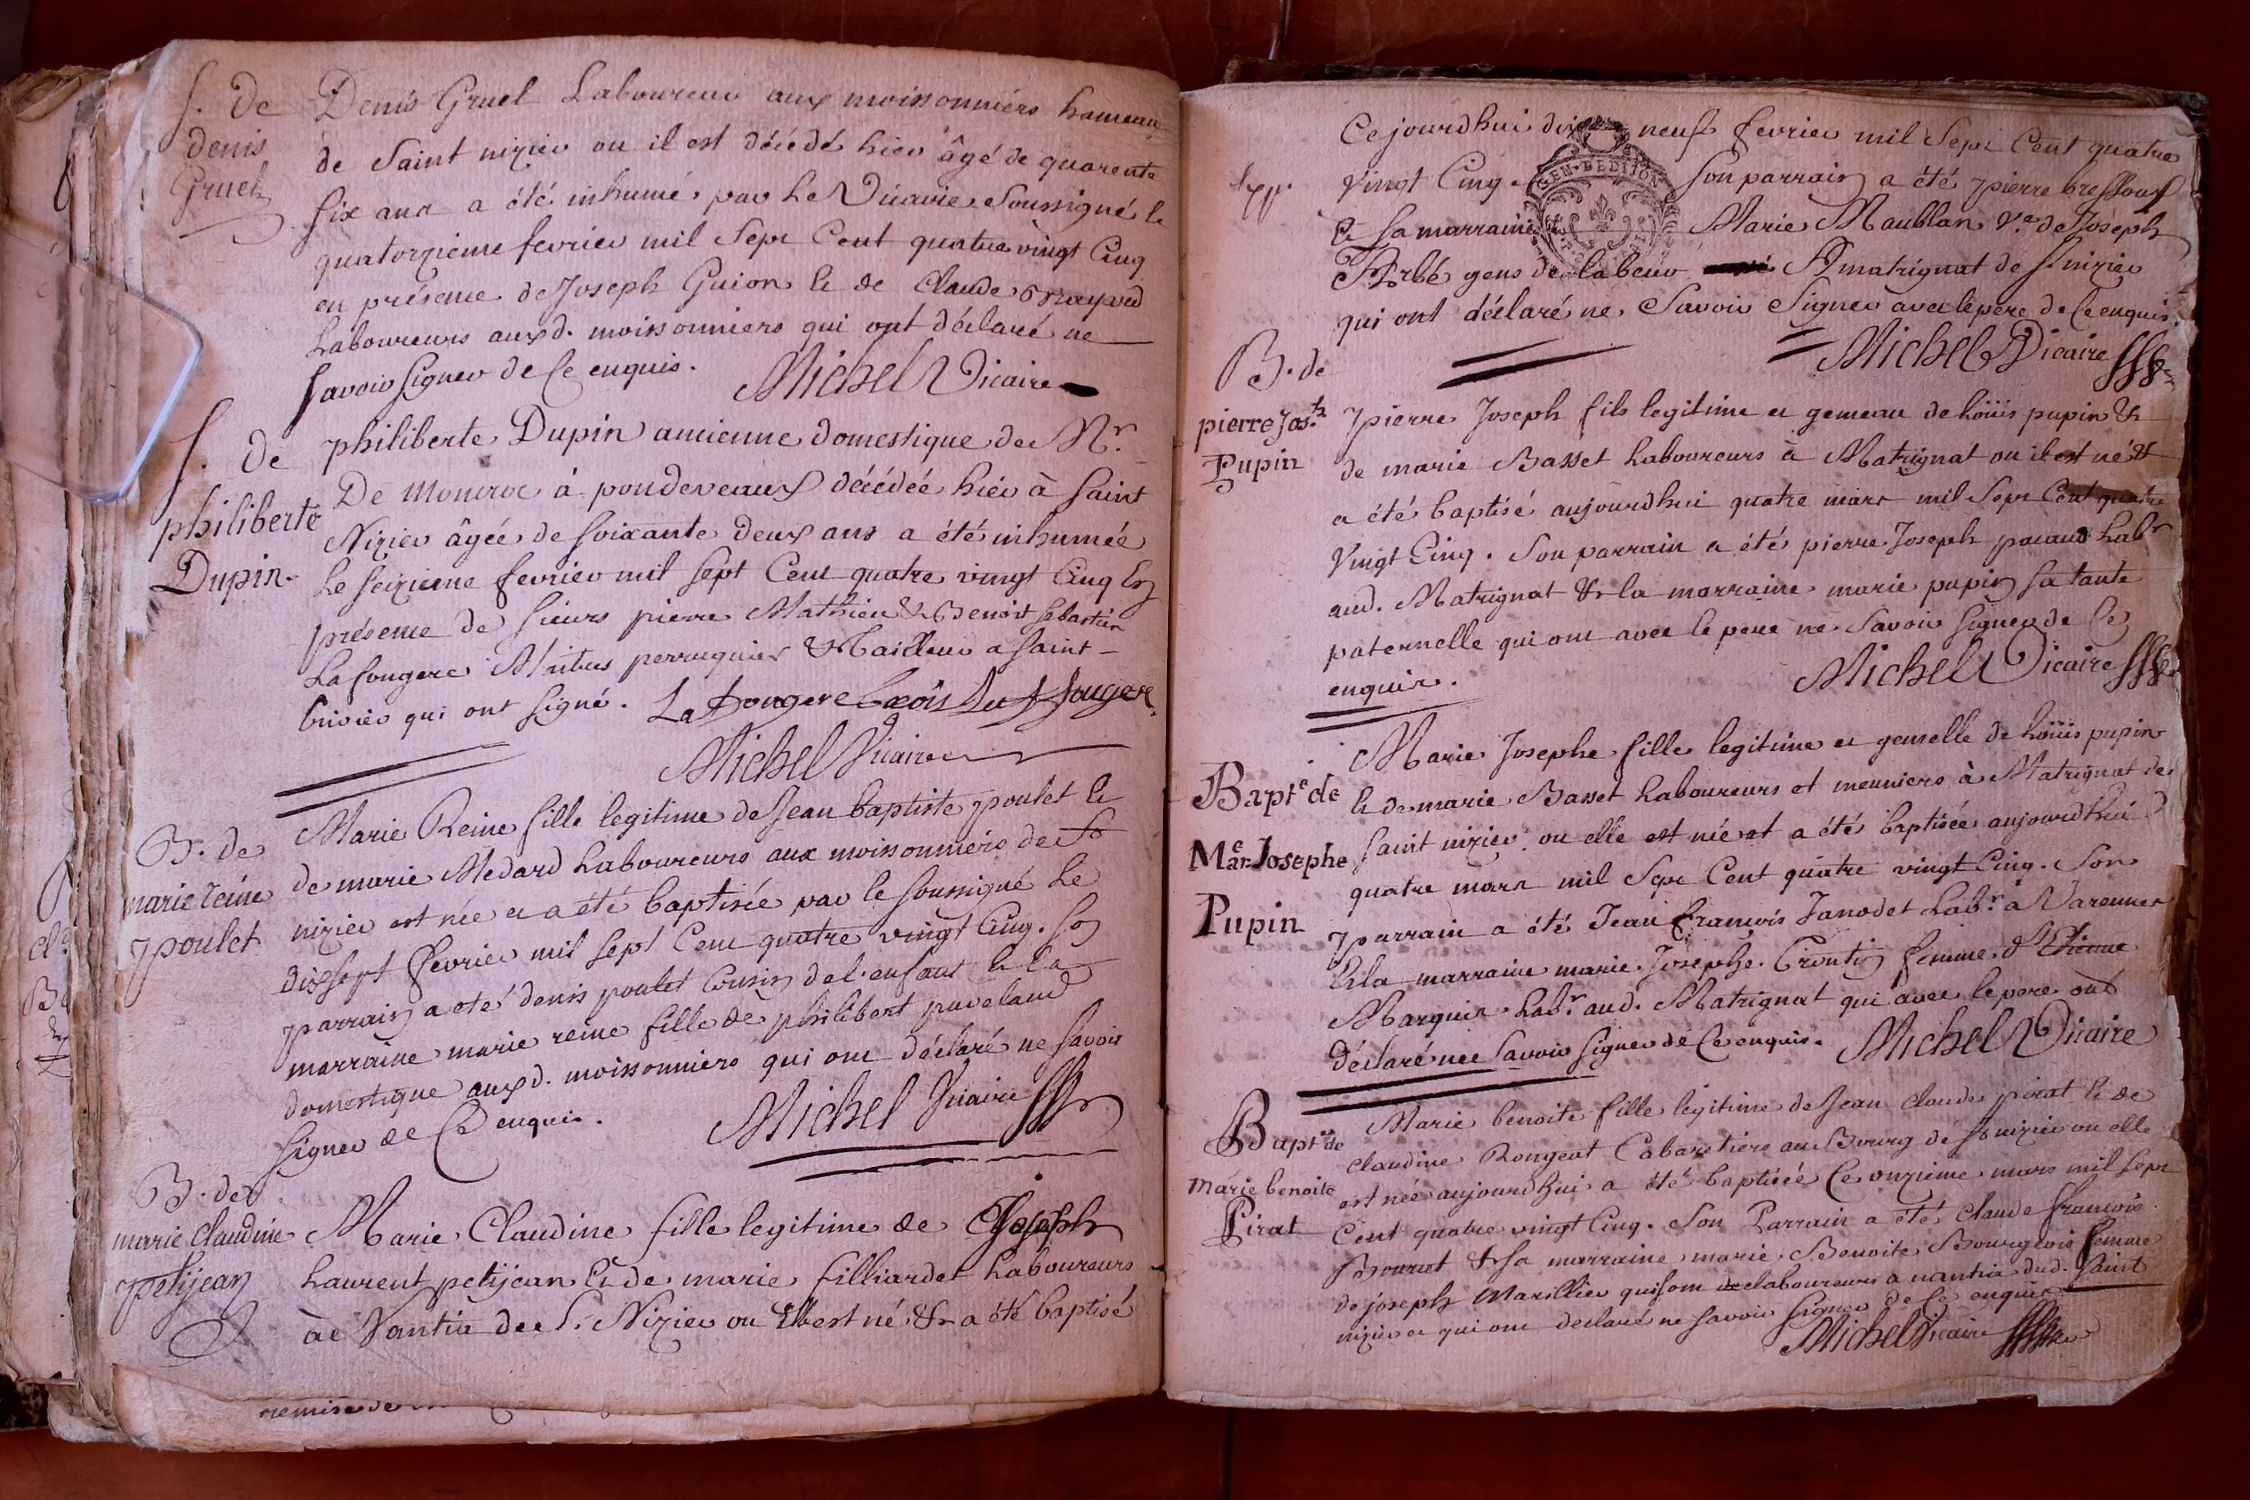 S. de
denis
Gruel
Denis Gruel Laboureur aux moissonniers hameau
de Saint nizier ou il est décédé hier âgé de quarente
six ans a été inhumé par Le Vicaire Soussigné le
quatorzieme fevrier mil Sept Cent quatre vingt Cinq
en présence de Joseph Guion & de Claude
Laboureurs auxd. moissonniers qui ont déclaré ne
savoir signer de Ce enquis. Michel Vicaire
S. de
philiberte
Dupin.
philiberte Dupin ancienne domestique de Mr
De Moncroc à pondeveaux décédée hier à saint
Nizier âgée de soixante deux ans a été inhumée
Le seizieme fevrier mil sept Cent quatre vingt Cinq En
présence de sieurs pierre Mathieu & Benoit sebastien
La fougere Maitres perruquier & Tailleur a saint
trivier qui ont signé. La fougere
Michel Vicaire
B. de
marie reine
poulet
Marie Reine fille legitime de Jean baptiste poulet &
de marie Medard Laboureurs aux moissonniers de St
nizier est née et a été baptisée par le soussigné Le
dixsept fevrier mil sept Cent quatre vingt Cinq. son
parrain a eté denis poulet Cousin de l'enfant & La
marraine marie reine fille de philibert
domestique auxd. moissonniers qui ont déclaré ne savoir
signer de Ce enquis. Michel Vicaire
B. de
marie claudine
petijean
Marie Claudine fille legitime de Joseph
Laurent petijean & de marie filliardet Laboureurs
à Nantia de S. Nizier ou est né & a été baptisé
Ce jourdhui dix neuf fevrier mil Sept Cent quatre
vingt Cinq. Son parrain a été pierre bressoux
& sa marraine Marie Maublan Ve de Joseph
gens de labeur A matrignat de S. nizier
qui ont déclaré ne Savoir Signer avec le pere de Ce enquis.
Michel Vicaire
GEN. DE DIJON
B. de
pierre Josh
Pupin
pierre Joseph fils legitime et gemeau de Loüis pupin &
de marie Basset Laboureurs à Matrignat ou il est né &
a été baptisé aujourdhui quatre mars mil Sept Cent quatre
Vingt Cinq. Son parrain a été pierre Joseph pacaud Labr
aud. Matrignat & la marraine marie pupin sa tante
paternelle qui ont avec le pere ne Savoir signer de Ce
enquis. Michel Vicaire
Bapte de
Mearie Josephe
Pupin
Marie Josephe fille legitime et gemelle de Loüis pupin
& de marie Basset Laboureurs et meuniers à Matrignat de
saint nizier ou elle est née et a été baptisée aujourdhui
quatre mars mil Sept Cent quatre vingt Cinq. Son
parrain a été Jean françois Janodet Labr. à Varennes
& la marraine marie Josephe femme d'Etienne
Marguin Labr. aud. Matrignat qui avec le pere ont
déclaré nee savoir signer de Ce enquis. Michel Vicaire
Bapte de
marie benoite
Pirat
Marie benoite fille legitime de Jean claude pirat & de
claudine Rongeat Cabaretiers au Bourg de St nizier ou elle
est née aujourdhui a été baptisée Ce onzieme mars mil sept
Cent quatre vingt Cinq. Son Parrain a été Claude françois
& sa marraine marie Benoite Bourgeois femme
de joseph Marillier qui sont de laboureurs a nantia dud. saint
nizier et qui ont declaré ne savoir signer de Ce enquis
Michel Vicaire